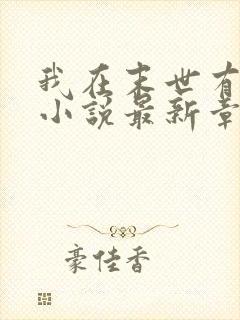 我在末世有
小说最新章
豪佳香